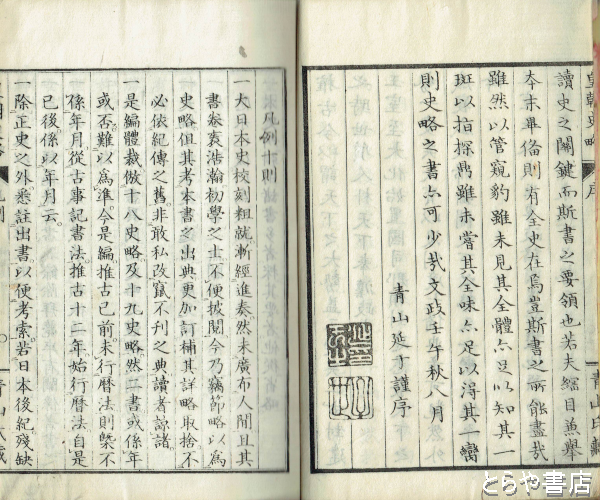 皇朝史略 序
讀史之關鍵而斯書之要領也若夫綱目兼舉
本末畢備則有全史在焉豈斯書之所能盡哉
雖然以管窺豹雖未見其全體亦足以知其一
斑以指探鼎雖未嘗其全味亦足以得其一臠
則史略之書亦可少哉文政壬午秋八月
青山延于謹序
凡例十則
一大日本史校刻粗就漸經進奏然未廣布人間且其
書卷袠浩瀚初學之士不便披閱今乃竊節略以爲
史略但其考本書之出典更加訂補其詳略取捨不
必依紀傳之舊非敢私改竄不刊之典讀者諒諸
一是編體裁倣十八史略及十九史略然二書或係年
或否難以爲準今是編推古已前未行曆法則槩不
係年月從古事記書法推古十二年始行曆法自是
已後係以年月云
一除正史之外悉註出書以便考索若日本後紀殘缺
凡例
青山氏藏
とらや書店